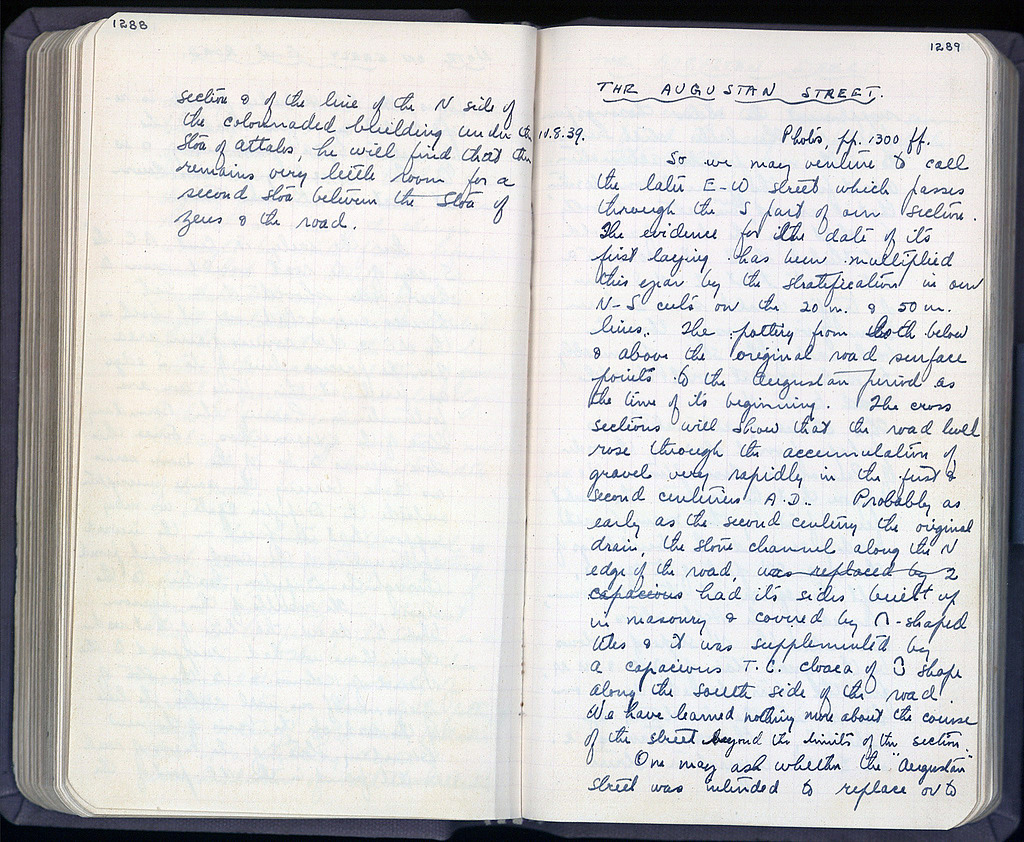 1288
section & of the line of the N side of
the colonnaded building under the
Stoa of Attalos, he will find that there
remains very little room for a
second Stoa between the Stoa of
Zeus & the road.
1289
THE AUGUSTAN STREET.
11.8.39.
Photos, pp. 1300 ff.
So we may venture to call
the later E-W street which passes
through the S part of our section.
The evidence for the date of its
first laying has been multiplied
this year by the stratification in our
N-S cuts on the 20 m. & 50 m.
lines. The pottery from both below
& above the original road surface
points to the Augustan period as
the time of its beginning. The cross
sections will show that the road level
rose through the accumulation of
gravel very rapidly in the first &
second centuries A.D.. Probably as
early as the second century the original
drain, the stone channel along the N
edge of the road, was replaced by 2
capacious had its sides built up
in masonry & covered by ∩-shaped
tiles & it was supplemented by
a capacious T.C. cloaca of shape
along the south side of the road.
We have learned nothing more about the course
of the street beyond the limits of the section.
One may ask whether the "Augustan"
street was intended to replace or to